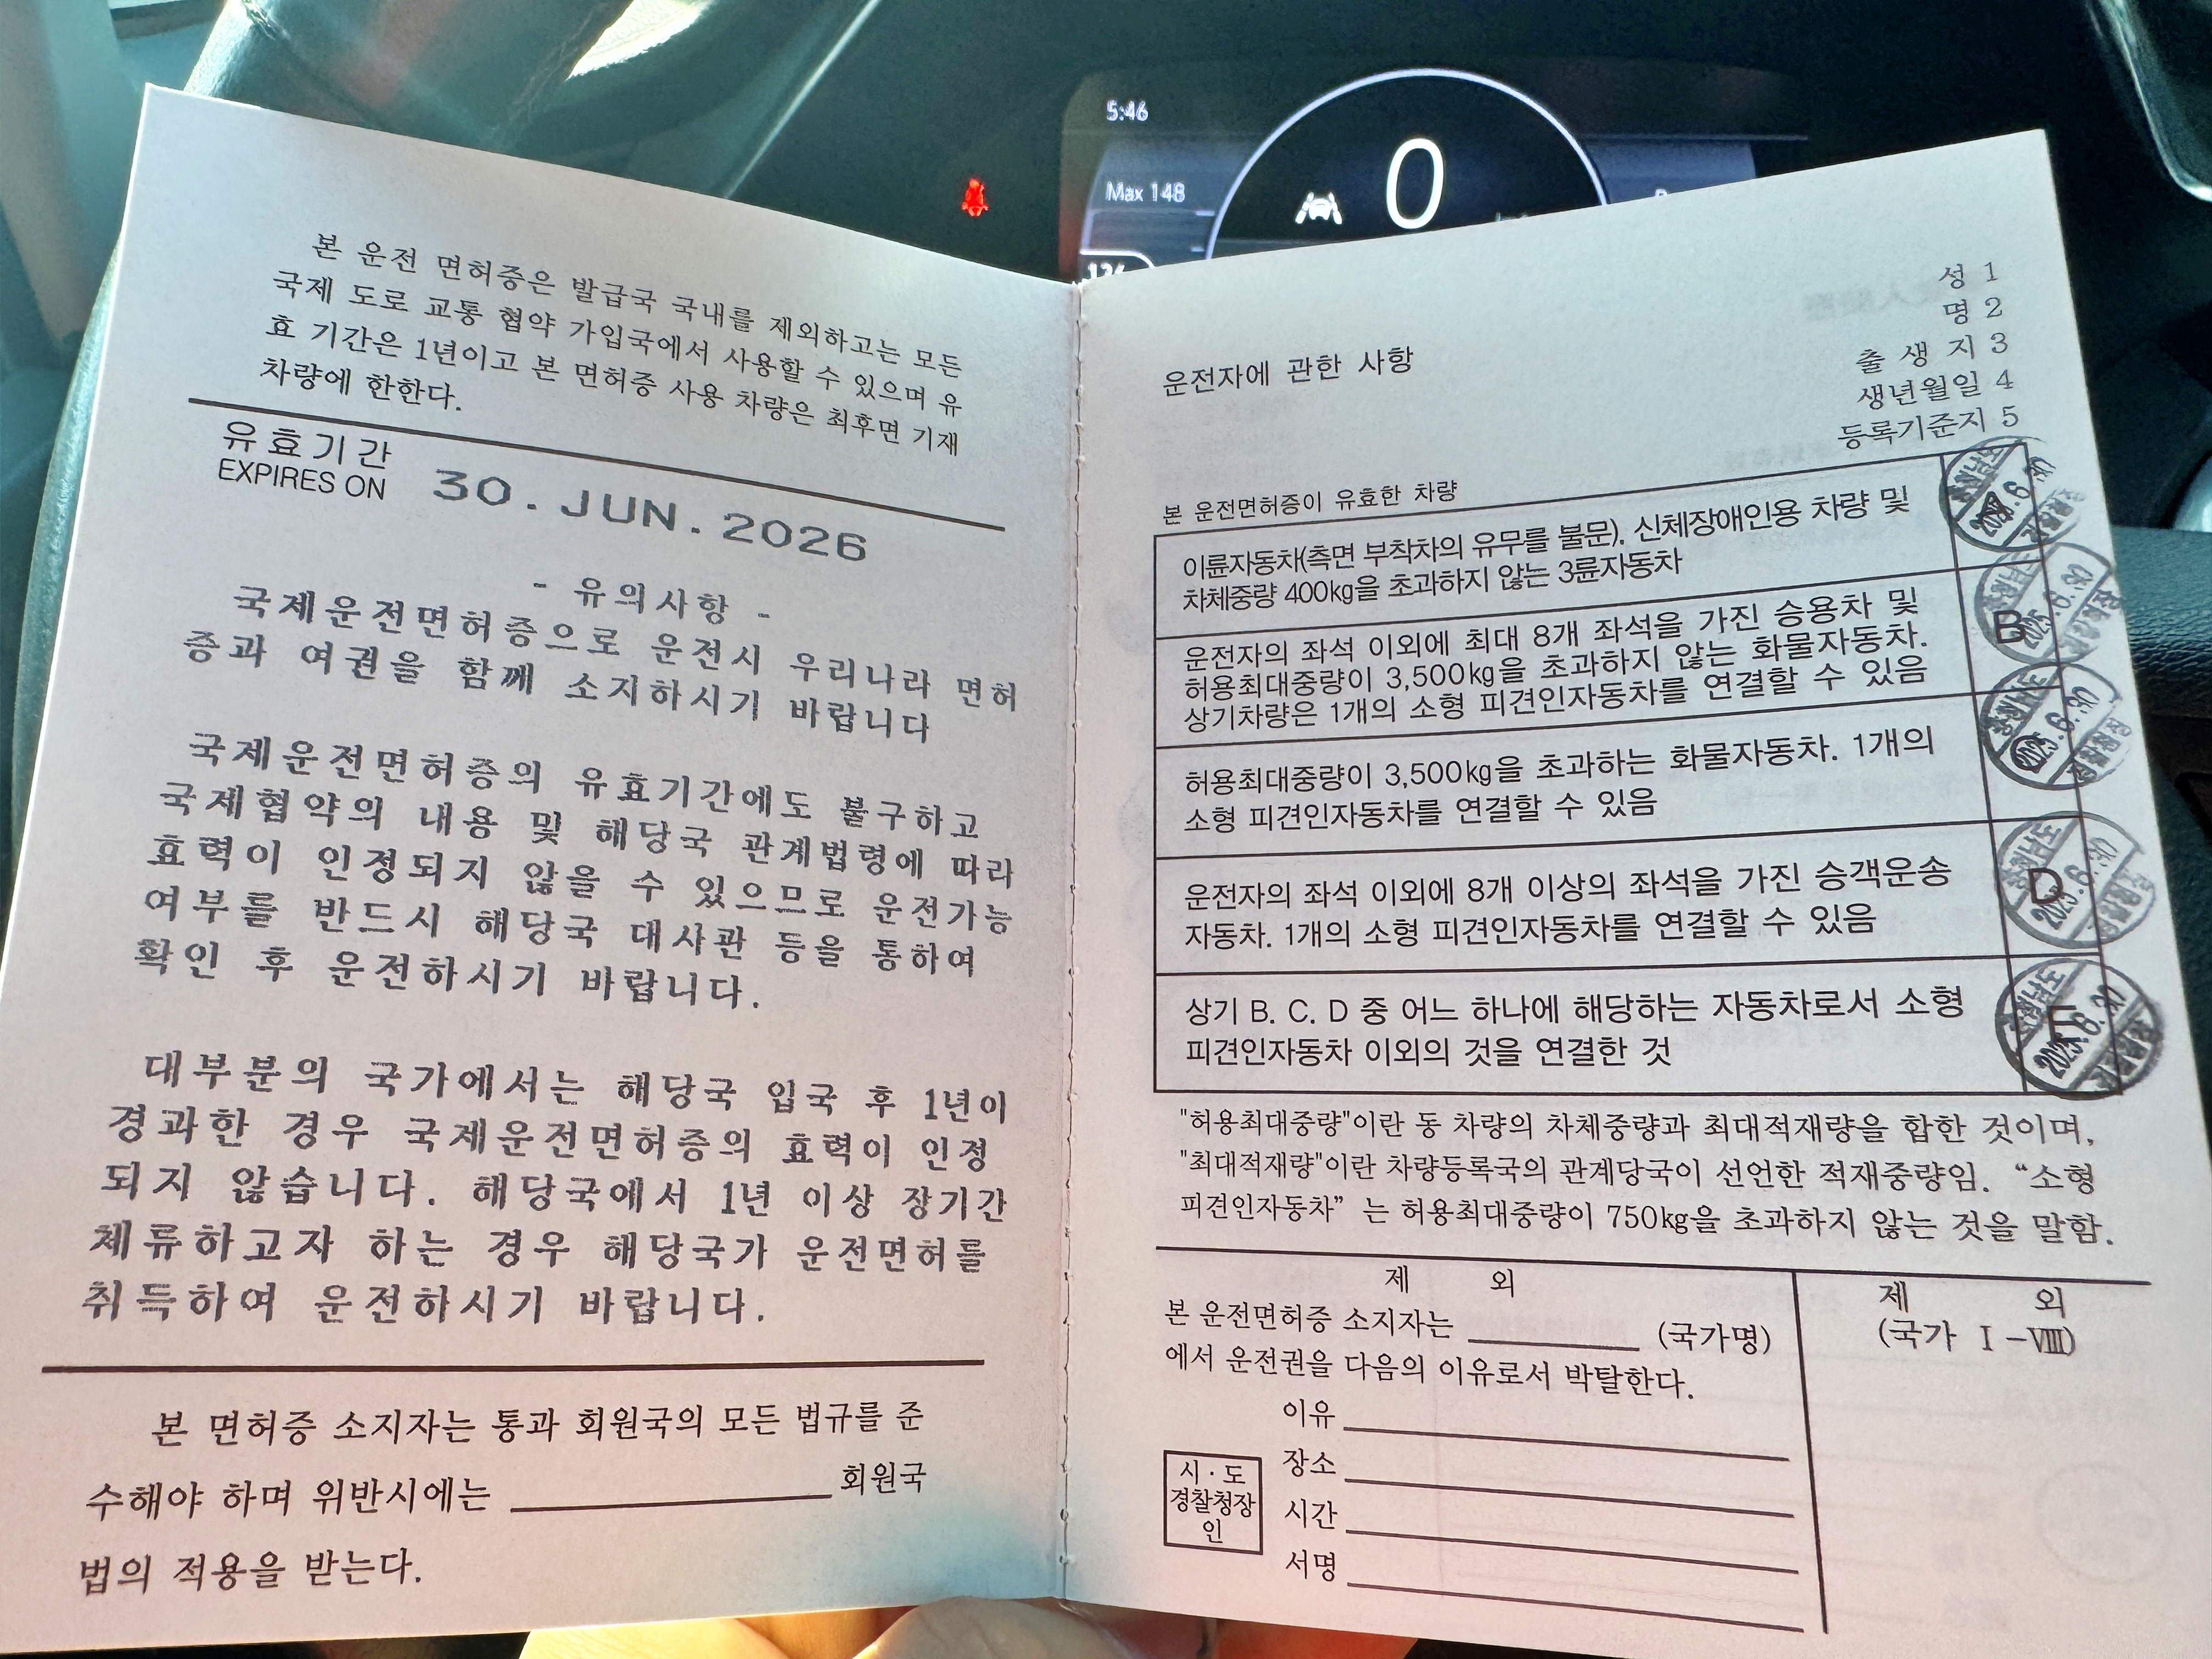 5:46
Max 148
0
본 운전 면허증은 발급국 국내를 제외하고는 모든
국제 도로 교통 협약 가입국에서 사용할 수 있으며 유
효 기간은 1년이고 본 면허증 사용 차량은 최후면 기재
차량에 한한다.
유효기간
EXPIRES ON
30. JUN. 2026
- 유의사항 -
국제운전면허증으로 운전시 우리나라 면허
증과 여권을 함께 소지하시기 바랍니다
국제운전면허증의 유효기간에도 불구하고
국제협약의 내용 및 해당국 관계법령에 따라
효력이 인정되지 않을 수 있으므로 운전가능
여부를 반드시 해당국 대사관 등을 통하여
확인 후 운전하시기 바랍니다.
대부분의 국가에서는 해당국 입국 후 1년이
경과한 경우 국제운전면허증의 효력이 인정
되지 않습니다. 해당국에서 1년 이상 장기간
체류하고자 하는 경우 해당국가 운전면허를
취득하여 운전하시기 바랍니다.
본 면허증 소지자는 통과 회원국의 모든 법규를 준
수해야 하며 위반시에는 회원국
법의 적용을 받는다.
성 1
명 2
출 생 지 3
생년월일 4
등록기준지 5
운전자에 관한 사항
본 운전면허증이 유효한 차량
이륜자동차(측면 부착차의 유무를 불문). 신체장애인용 차량 및
차체중량 400kg을 초과하지 않는 3륜자동차
운전자의 좌석 이외에 최대 8개 좌석을 가진 승용차 및
허용최대중량이 3,500kg을 초과하지 않는 화물자동차.
상기차량은 1개의 소형 피견인자동차를 연결할 수 있음
B
허용최대중량이 3,500kg을 초과하는 화물자동차. 1개의
소형 피견인자동차를 연결할 수 있음
운전자의 좌석 이외에 8개 이상의 좌석을 가진 승객운송
자동차. 1개의 소형 피견인자동차를 연결할 수 있음
D
상기 B. C. D 중 어느 하나에 해당하는 자동차로서 소형
피견인자동차 이외의 것을 연결한 것
"허용최대중량"이란 동 차량의 차체중량과 최대적재량을 합한 것이며,
"최대적재량"이란 차량등록국의 관계당국이 선언한 적재중량임. “소형
피견인자동차” 는 허용최대중량이 750kg을 초과하지 않는 것을 말함.
제 외
본 운전면허증 소지자는 (국가명)
에서 운전권을 다음의 이유로서 박탈한다.
이유
장소
시간
서명
시·도
경찰청장
인
제 외
(국가 Ⅰ-Ⅷ)